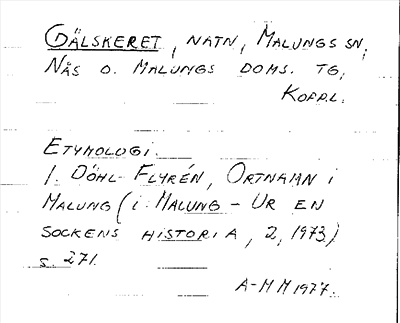 GÄLSKERET, NATN, MALUNGS SN,
NÅS O. MALUNGS DOMS. TG,
KOPP.L.
ETYMOLOGI.
I. DÖHL-FLYRÉN, ORTNAMN I
MALUNG (I MALUNG - UR EN
SOCKENS HISTORIA, 2, 1973)
s. 271.
A-MM 1977.